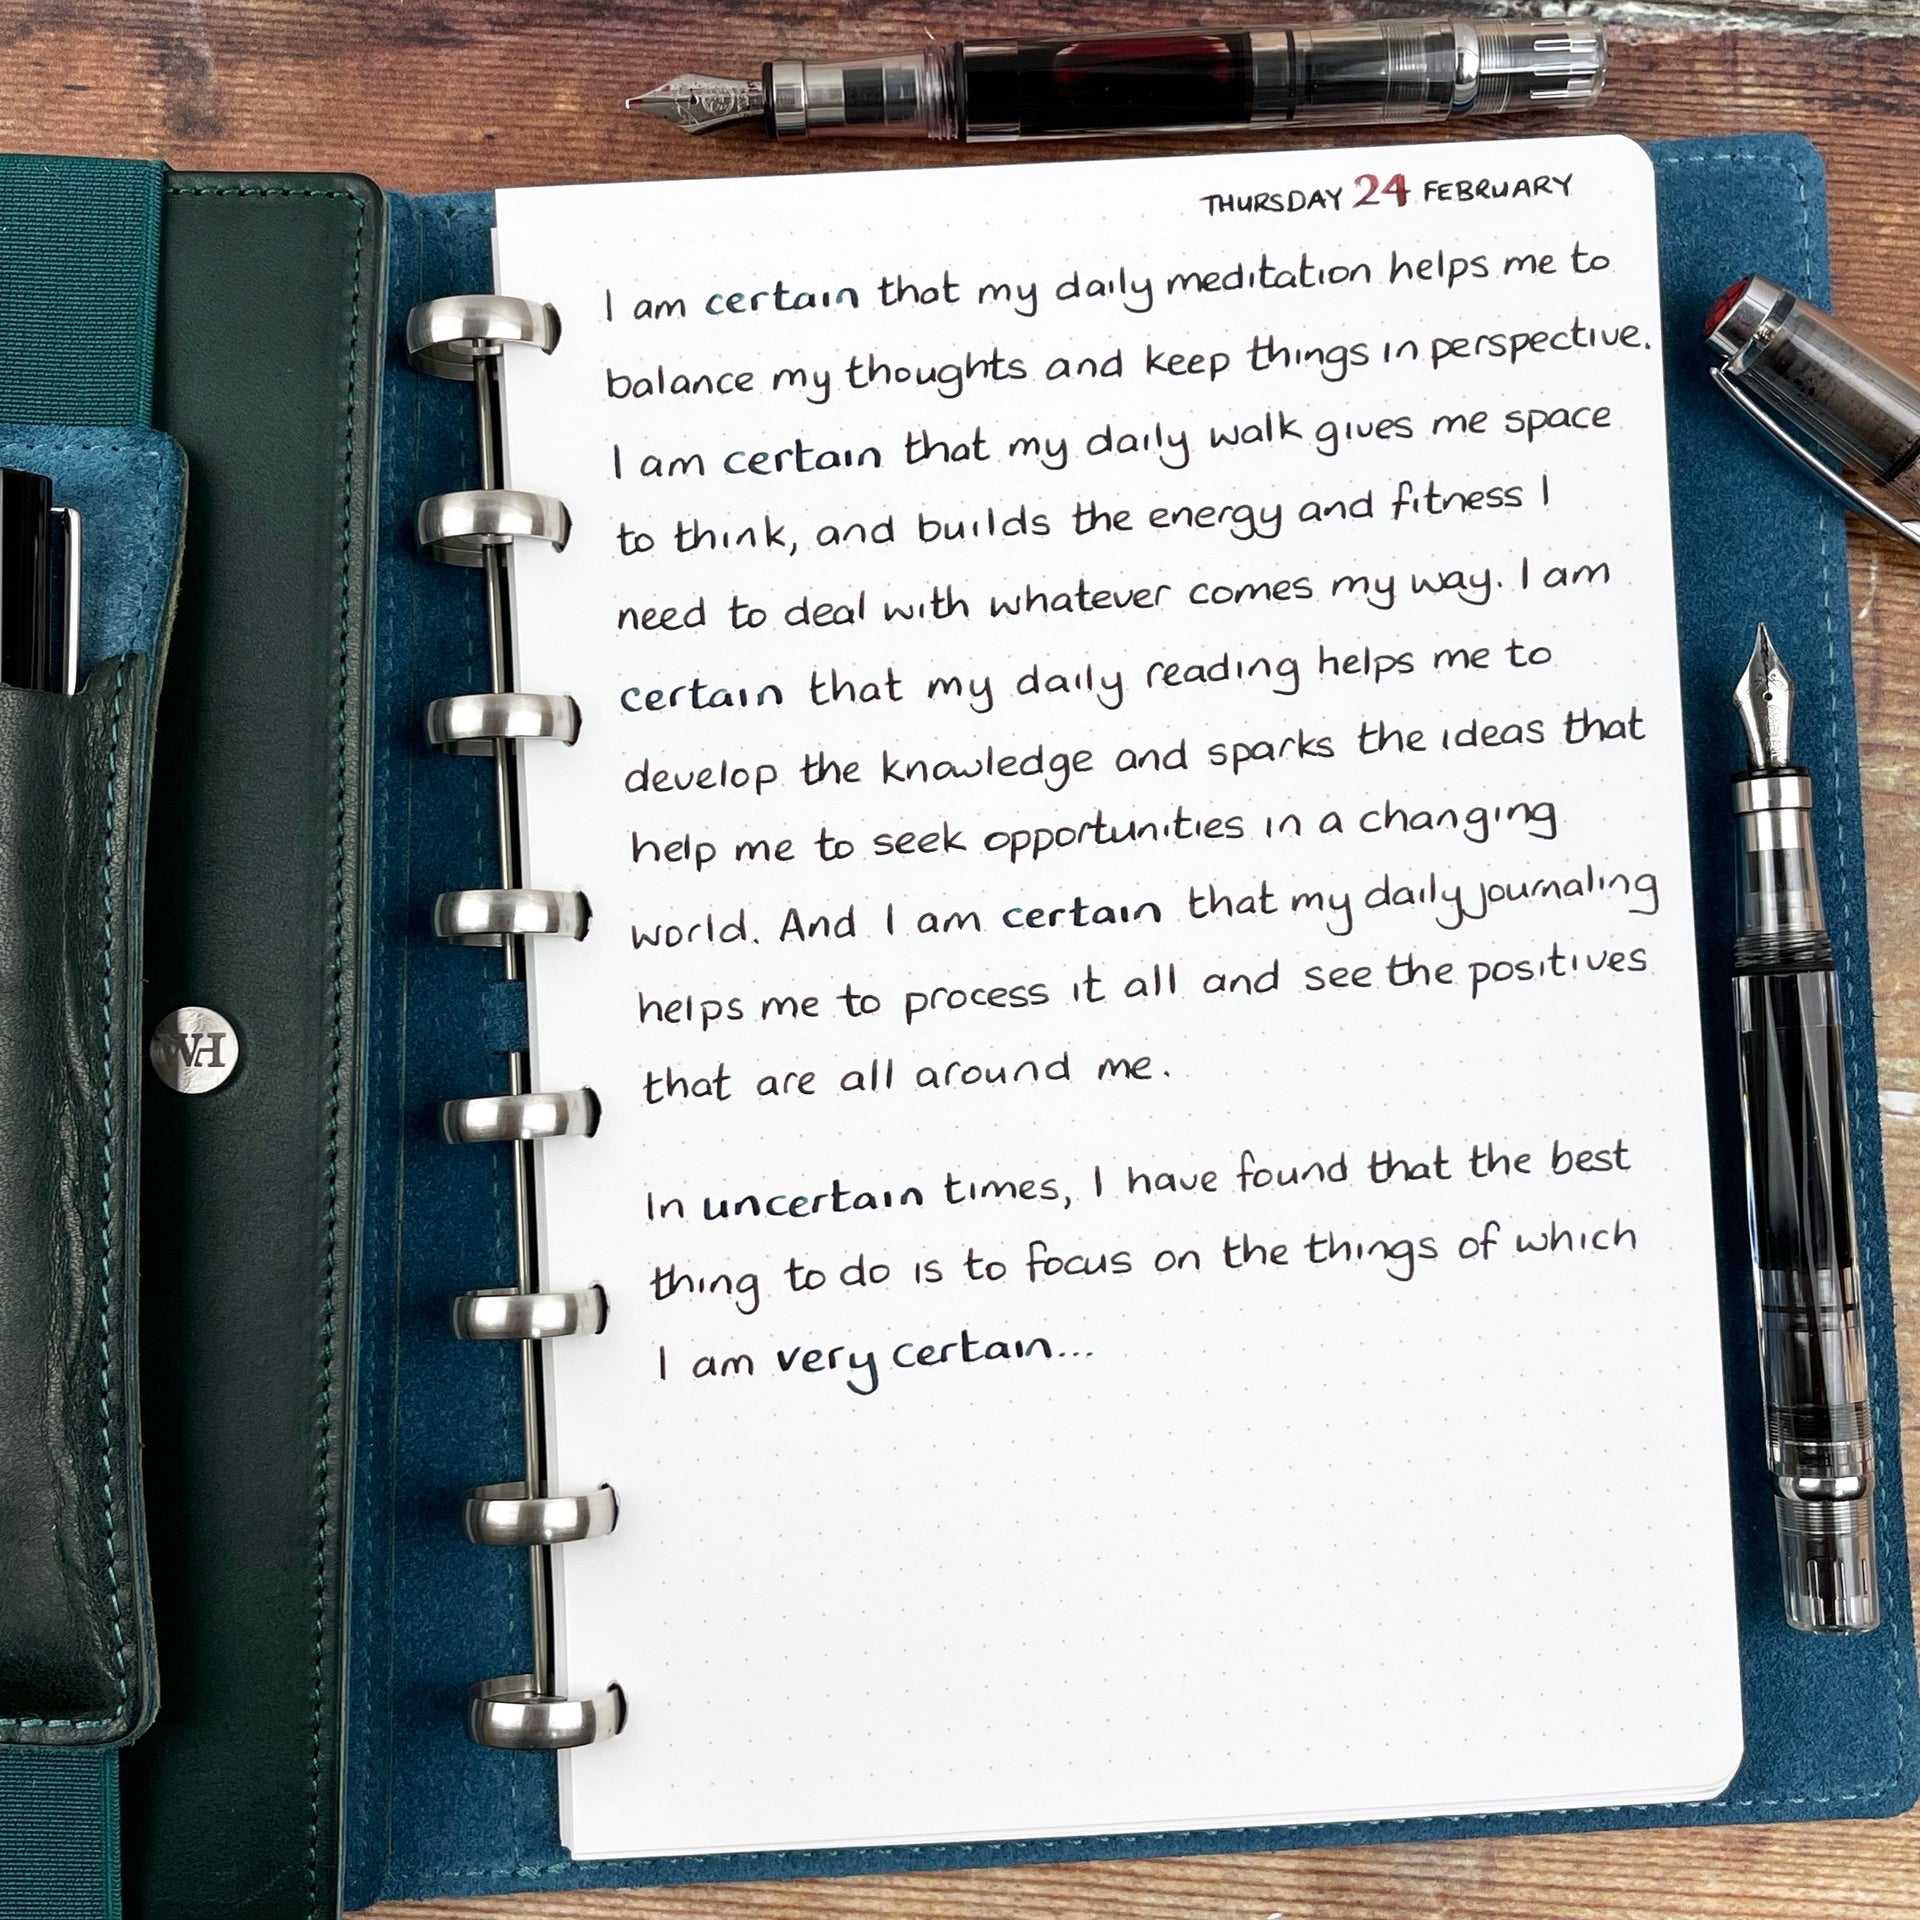 THURSDAY 24 FEBRUARY
I am certain that my daily meditation helps me to
balance my thoughts and keep things in perspective.
I am certain that my daily walk gives me space
to think, and builds the energy and fitness I
need to deal with whatever comes my way. I am
certain that my daily reading helps me to
develop the knowledge and sparks the ideas that
help me to seek opportunities in a changing
world. And I am certain that my daily journaling
helps me to process it all and see the positives
that are all around me.
In uncertain times, I have found that the best
thing to do is to focus on the things of which
I am very certain...
WH